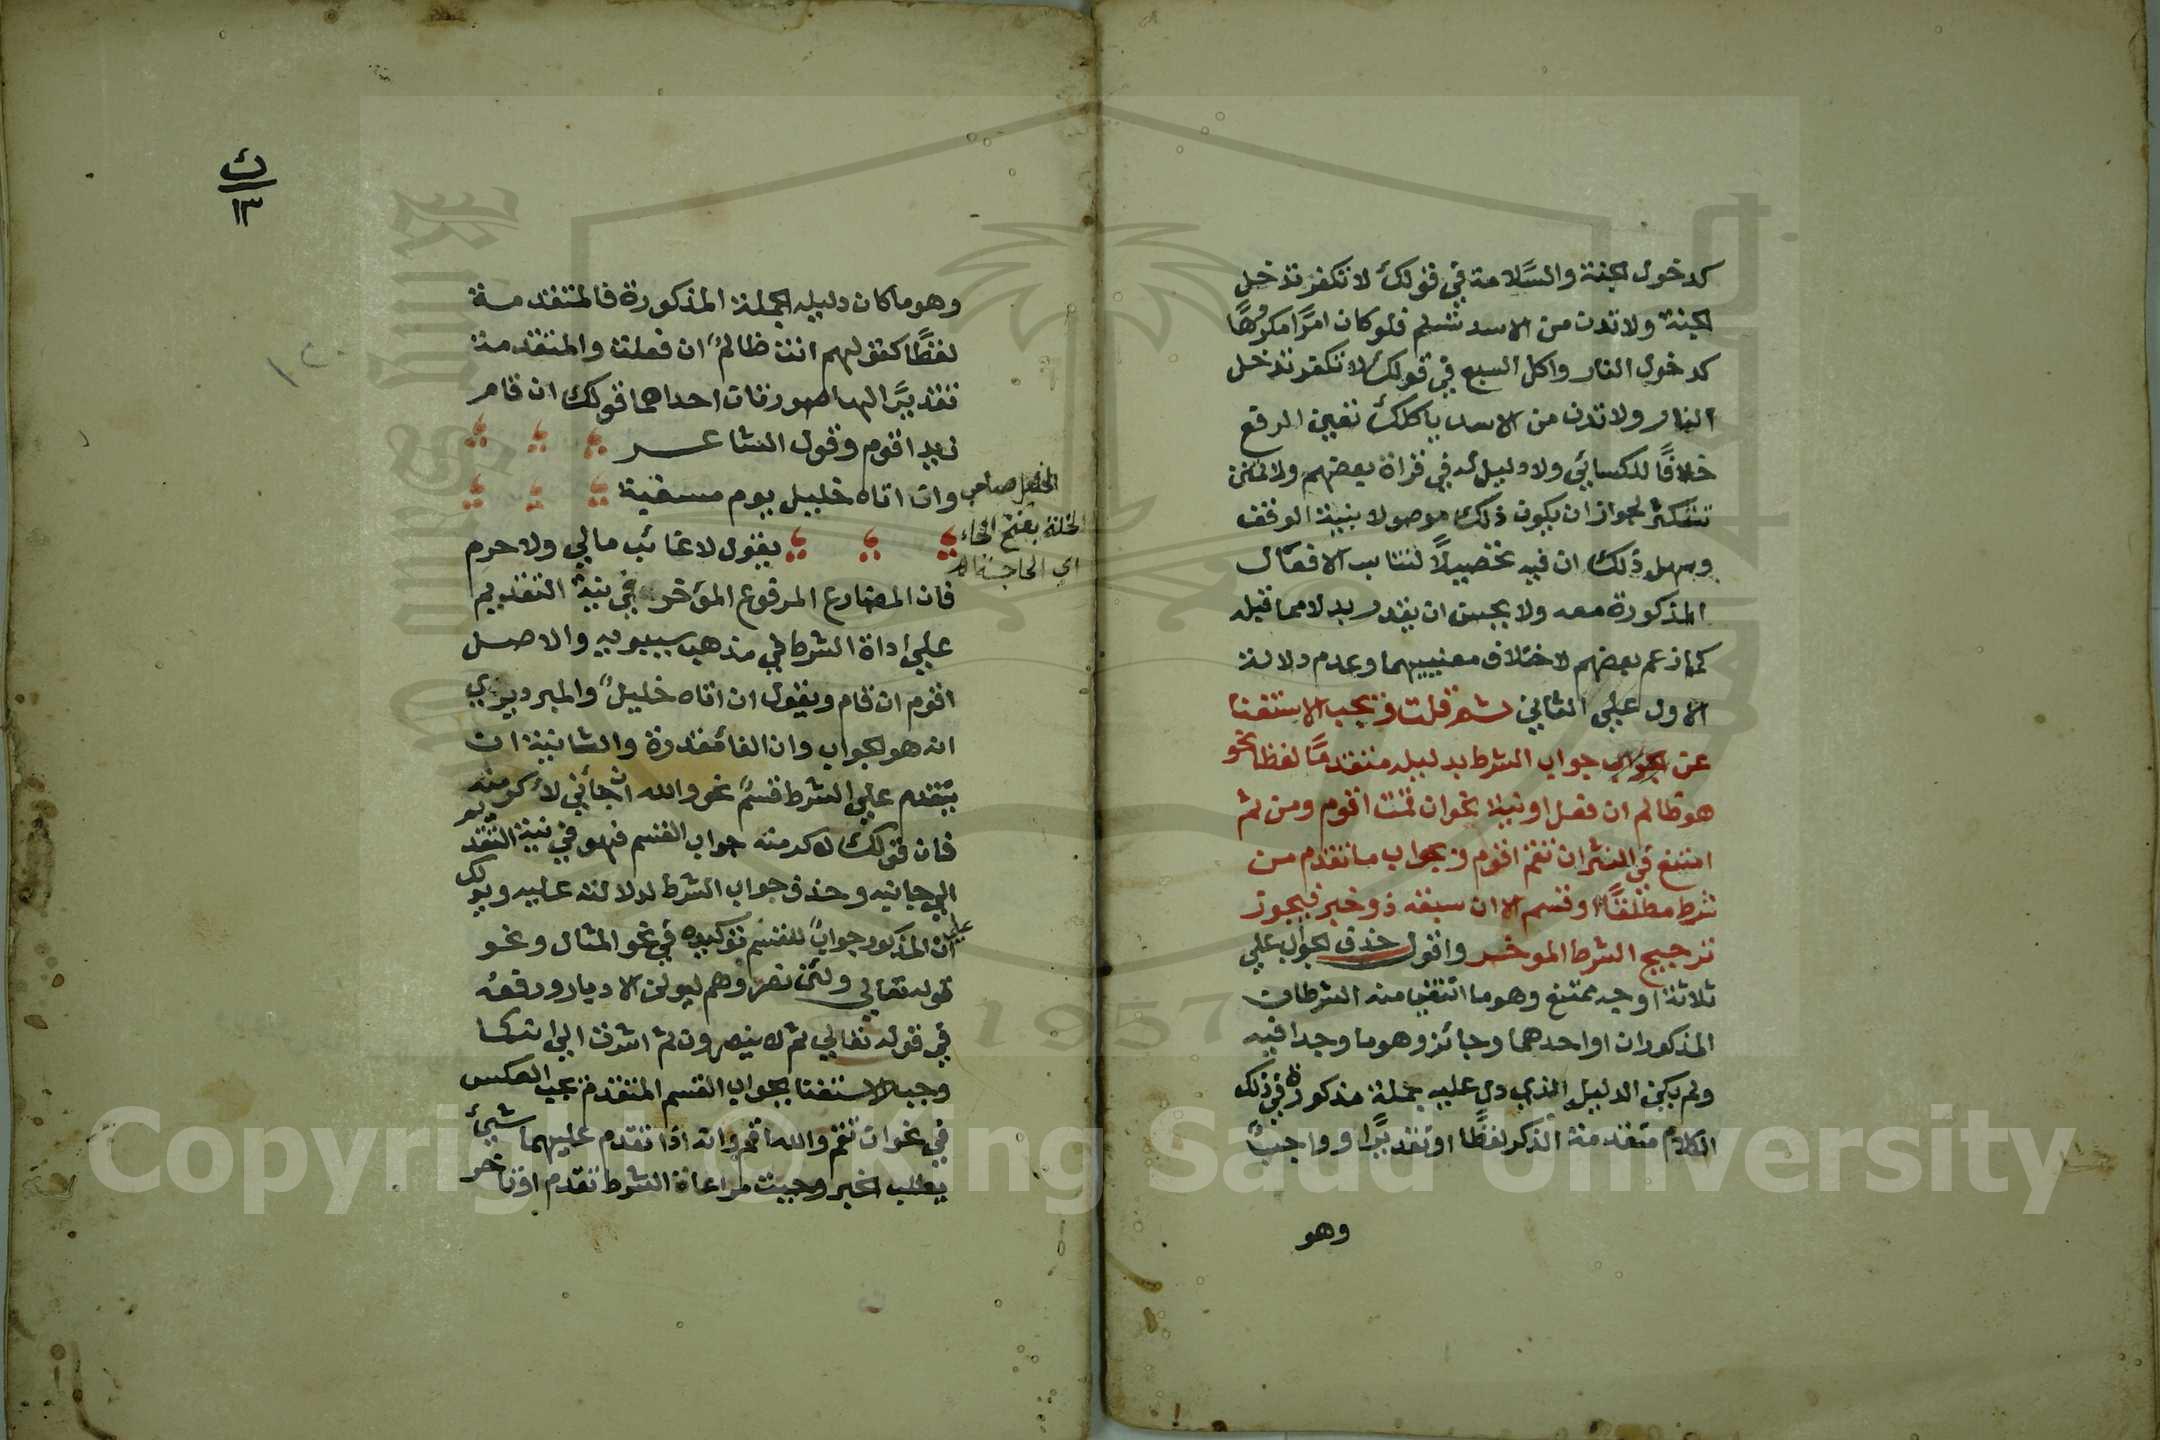 كدخول الجنة والسلامة في قولك لا تكفر تدخل
الجنة ولا تدن من الاسد تسلم فلو كان امرًا مكروهًا
كدخول النار واكل السبع في قولك لا تكفر تدخل
النار ولا تدن من الاسد ياكلك تعين الرفع
خلافًا للكسائي ولا دليل له في قراة بعضهم ولا تمنن
تستكثر لجواز ان يكون ذلك موصولا بنية الوقف
وسهل ذلك ان فيه تحصيلاً لتناسب الافعال
المذكورة معه ولا يحسن ان يقدر بدلا مما قبله
كما زعم بعضهم لاختلاف معنييهما وعدم دلالة
الاول علي الثاني ثم قلت ويجب الاستغنا
عن جواب الشرط بدليله متقدمًا لفظا نحو
هو ظالم ان فعل او نية نحو ان قمت اقوم ومن ثم
امتنع في النثر ان تقم اقوم وبجواب ما تقدم من
شرط مطلقًا او قسم الا ان سبقه ذو خبر فيجوز
ترجيح الشرط الموخر واقول حذف الجواب علي
ثلاثة اوجه ممتنع وهو ما انتفي منه الشرطان
المذكوران او احدهما وجائز وهو ما وجدا فيه
ولم يكن الدليل الذي دل عليه جملة مذكورة في ذلك
الكلام متقدمة الذكر لفظًا او تقديرًا وواجبًا
وهو
ك
١٣
وهو ما كان دليله الجملة المذكورة فالمتقدمة
لفظًا كقولهم انت ظالمٌ ان فعلت والمتقدمة
تقديرًا لها صورتان احداهما قولك ان قام
زيد اقوم وقول الشاعر
وان اتاه خليل يوم مسغبة
يقول لا غائب مالي ولا حرم
الخليل صاحب
الخلة بفتح الخاء
اي الحاجة
فان المضارع المرفوع المؤخر في نية التقديم
علي اداة الشرط في مذهب سيبويه والاصل
اقوم ان قام ويقول ان اتاه خليلٌ والمبرد يري
انه هو الجواب وان الفأ مقدرة والثانية ان
يتقدم علي الشرط قسمٌ نحو والله ان جأني لأكرمنه
فان قولك لاكرمنه جواب القسم فهو في نية التقديم
الي جانبه وحذف جواب الشرط لدلالته عليه ويدلك
علي
ان المذكور جوابٌ للقسم توكيده في نحو المثال ونحو
قوله تعالي ولئن نصروهم ليولن الادبار ورفعه
في قوله تعالي ثم لا ينصرون ثم اشرت الي انه كما
وجب الاستغنا بجواب القسم المتقدم يجب العكس
في نحو ان تقم والله اقم وانه اذا تقدم عليهما شيئ
يطلب الخبر وجبت مراعاة الشرط تقدم او تاخر